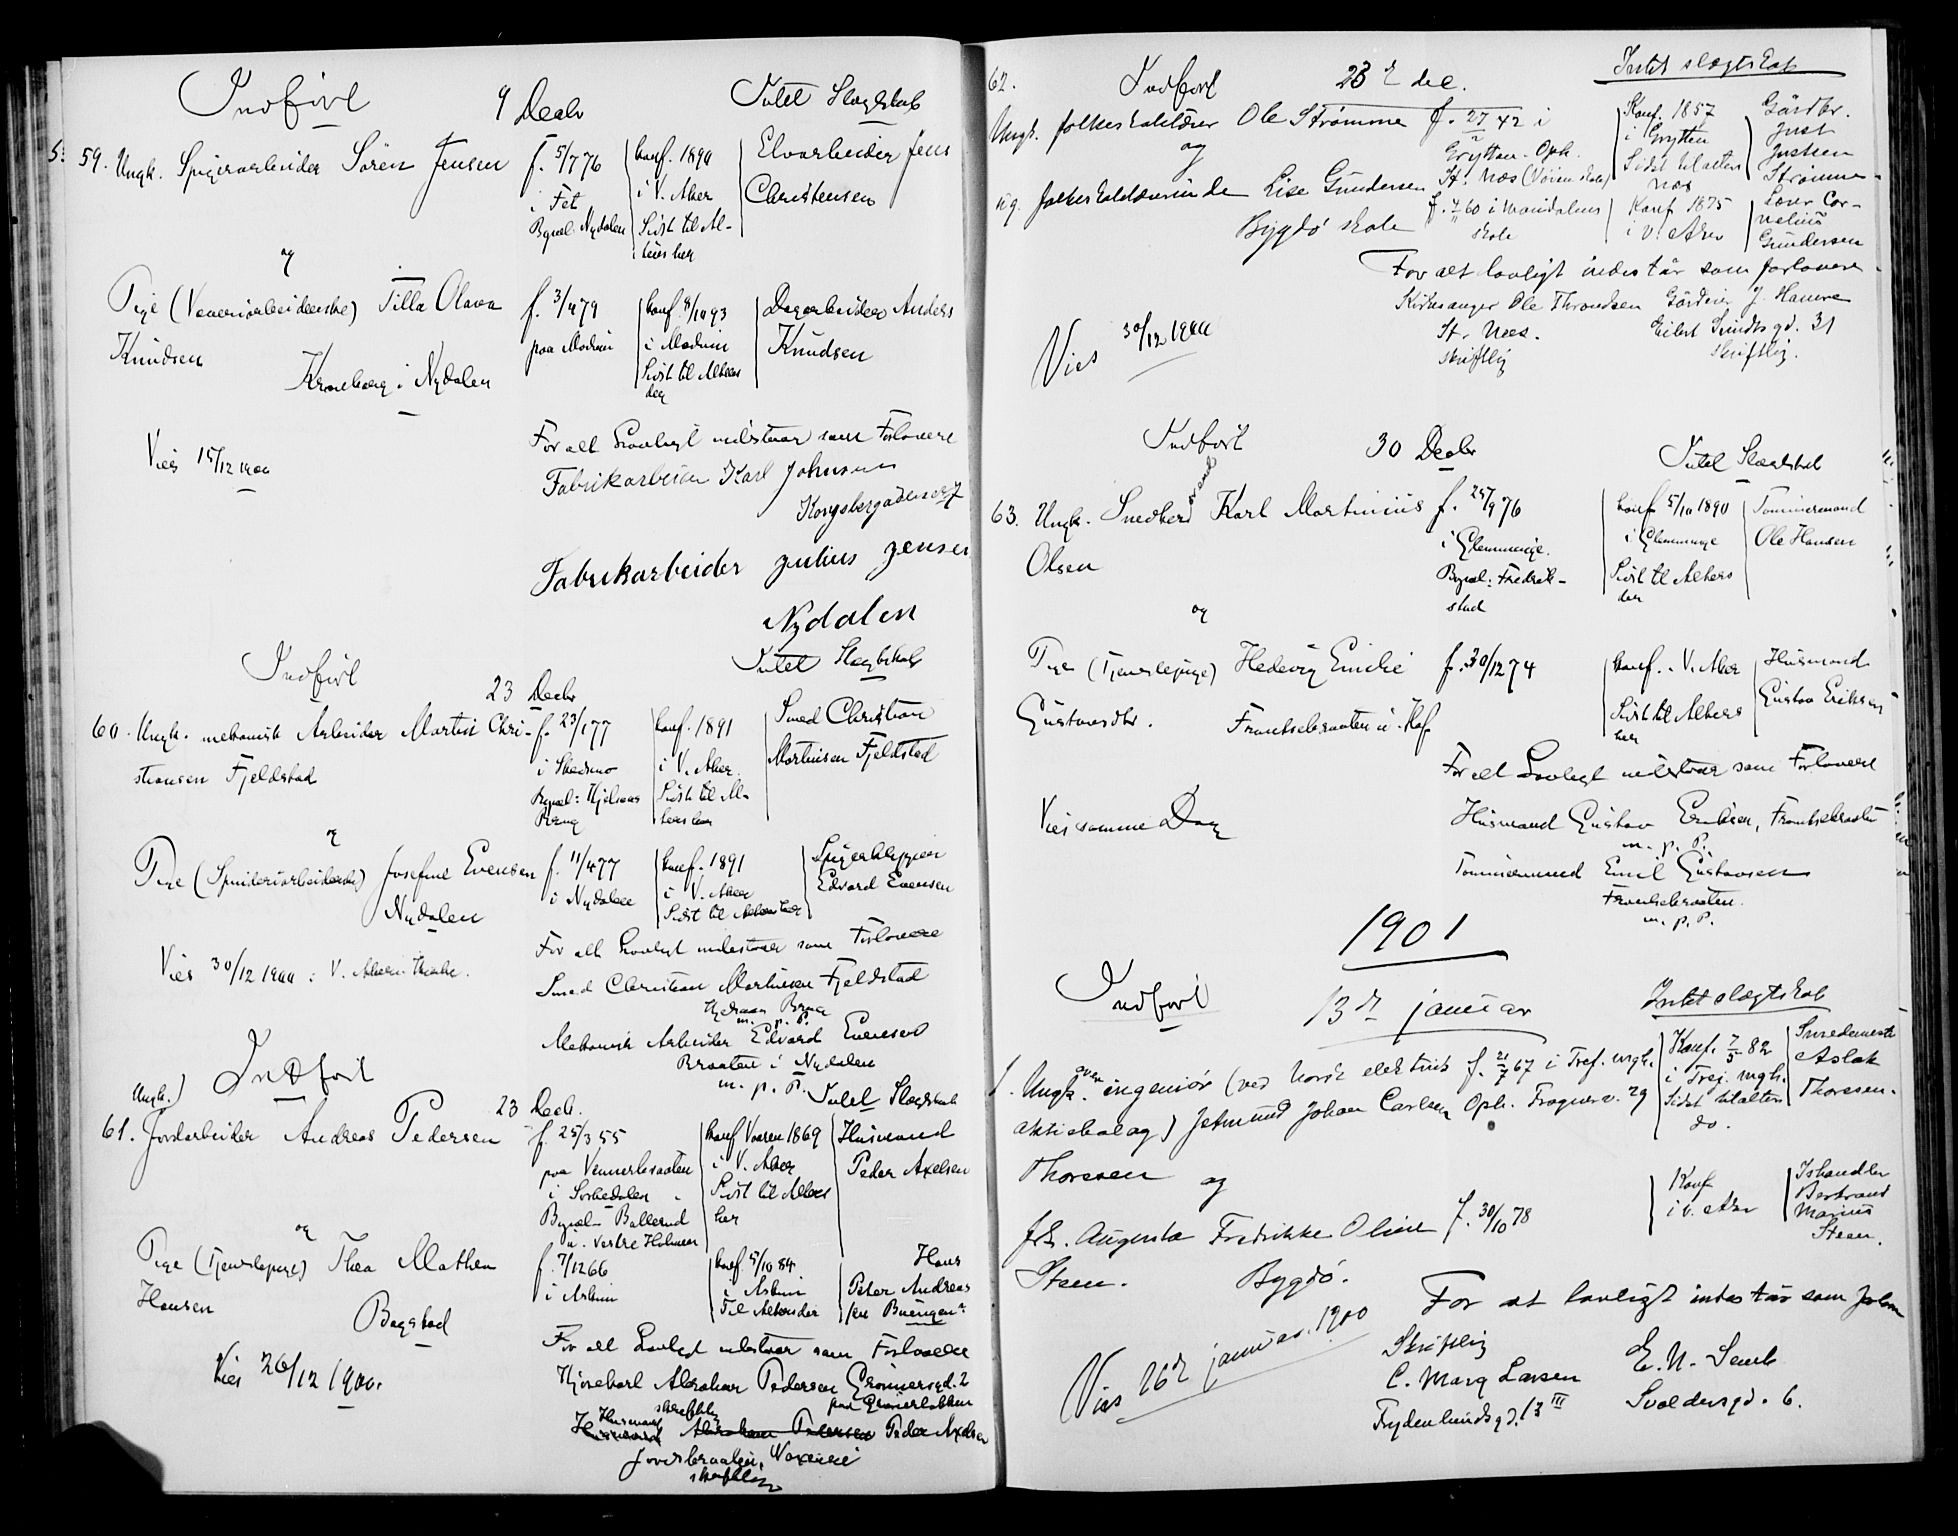 Indført
9 Decbr
Intet Slægtskab
59. Ungk. Spigerarbeider Sören Jensen
f. 5/7 76
i Fet
Bopæl: Nydalen
konf. 1890
i V. Aker
Sidst til Al-
ters her
Elvarbeider Jens
Christensen
og
Pige (Væveriarbeiderske) Tilla Olava
Knudsen
Kroneborg i Nydalen
f. 3/4 79
paa Modum
konf. 8/10 93
i Modum
Sidst til Alters
her
Dagarbeider Anders
Knudsen
Viet 15/12 1900
For alt Lovligt indestaar som Forlovere
Fabrikarbeider Karl Johnsen
Kongsbergadens 7
Fabrikarbeider Julius Jensen
Nydalen
Indført
23 Decbr
Intet Slægtskab
60. Ungk. mekanisk Arbeider Martin Chri-
stiansen Fjeldstad
f. 23/1 77
i Skedsmo
Bopæl: Kjelsaas
Brug
konf. 1891
i V. Aker
Sidst til Al-
ters her
Smed Christian
Martinsen Fjeldstad
og
Pige (Spinderiarbeiderske) Josefine Evensen
Nydalen
f. 11/4 77
i Nydalen
konf. 1891
i V. Aker
Sidst til Alters her
Spigerklipper
Edvard Evensen
Viet 30/12 1900 i V. Akers Kirke.
For alt Lovligt indestaar som Forlovere
Smed Christian Martinsen Fjeldstad
Brug
m. p. P.
Mekanisk Arbeider Edvard Evensen
Braaten i Nydalen
m. p. P.
Indført
23 Decb.
Intet Slægtskab
Ungk.)
61. Jordarbeider Andreas Pedersen
f. 25/3 55
paa Vennersbraaten
i Sørkedalen
Bopæl Ballerud
u. Vestre Holmen
konf Vaaren 1869
i V. Aker
Sidst til Alters
her
Husmand
Peder Axelsen
og
Pige (Tjenstepige) Thea Mathea
Hansen
Bogstad
f. 7/12 66
i Askim
konf 5/10 84
i Askim
Til Alters der
Hans
Peter Andreas
sen Buengen
Viet 26/12 1900.
For alt Lovligt indestaar som Forlovere
Abraham Pedersen Grønnersgd. 2
skriftlig paa Grünerløkken
Husmand Peder Axelsen
skriftlig
62.
Indført
23 de dec.
Intet slægtskab
Ungk. folkeskolelærer Ole Strømme
f. 27/2 42 i
Grytten. Oph.
St. Næs (Vøien skole)
Konf. 1857
i Grytten
Sidst til alters
Næs
Gårdbr.
Just
Justsen
Strømme
og
Pig. folkeskolelærerinde Lise Gundersen
Bygdø skole
f. 7/11 60 i Mandalens
skole
Konf 1875
i V. Aker
Lærer Cor-
nelius
Gundersen
For alt lovligt indestår som forlovere
Kirkesanger Ole Throndsen
St. Næs.
skriftlig
Gårdeier J. Hamre
Eilert Sundtsgd. 31
skriftlig.
Viet 30/12 1900
Indført
30 Decbr
Intet Slægtskab
63. Ungk. Smedsvend Karl Martinius
Olsen
f. 25/9 76
i Glemminge.
Bopæl: Fredrik-
stad
konf 5/10 1890
i Glemminge
Sidst til Alters
der
Tømmermand
Ole Hansen
og
Pige (Tjenstepige) Hedevig Emilie
Gustavsdtr.
Franksebraaten u. Hof
f. 30/12 74
konf. V. Aker
Sidst til Alters
her
Husmand
Gustav Eriksen
Viet samme Dag
For alt Lovligt indestaar som Forlovere
Husmand Gustav Eriksen, Franksebraaten
m. p. P.
Tømmermand Emil Gustavsen
Franksebraaten.
m. p. P.
1901
Indført
13de januar
Intet slægtskab
1. Ungk. overingeniør (ved Norsk elektrisk
aktiebolag) Jetmund Johan Carlsen
Thoresen
f. 21/7 67 i Tref. mgh.
Oph. Frognerv. 29
Konf. 7/5 82
i Tref. mgh.
Sidst til alters
do.
Snedkermester
Aslak
Thoresen.
og
frk. Augusta Fredrikke Oline
Steen.
Bygdø.
f. 30/10 78
Konf
i V. Aker
Ishandler
Bertrand
Marius
Steen.
Viet 26de januar 1900
For alt lovligt indestår som forlov
Skriftlig
C. Marg Larsen
Frydenlundsgd. 13 III
E. N. Semb
Svoldersgd. 6.